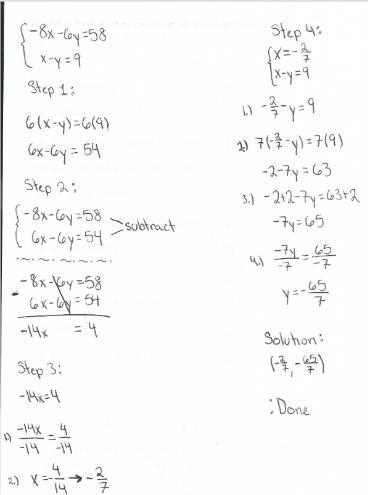 {-8x-6y=58
x-y=9
Step 1:
6(x-y)=6(9)
6x-6y=54
Step 2:
{-8x-6y=58
6x-6y=54 >subtract
-8x-6y=58
- 6x-6y=54
-14x =4
Step 3:
-14x=4
1) -14x/-14=4/-14
2.) x=-4/14→-2/7
Step 4:
{x=-2/7
x-y=9
1.) -2/7-y=9
2) 7(-2/7-y)=7(9)
-2-7y=63
3.) -2+2-7y=63+2
-7y=65
4.) -7y/-7=65/-7
y=-65/7
Solution:
(-2/7,-65/7)
:Done